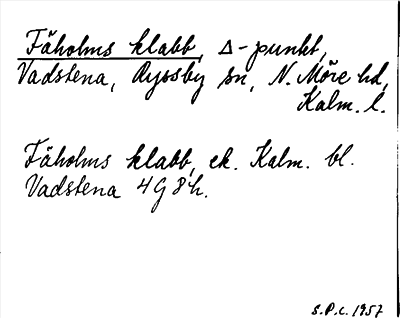 Fäholms klabb, Δ-punkt,
Vadstena, Ryssby sn, N. Möre hd,
Kalm. l.
Fäholms klabb, ek. Kalm. bl.
Vadstena 4G8h.
S.P.C. 1957